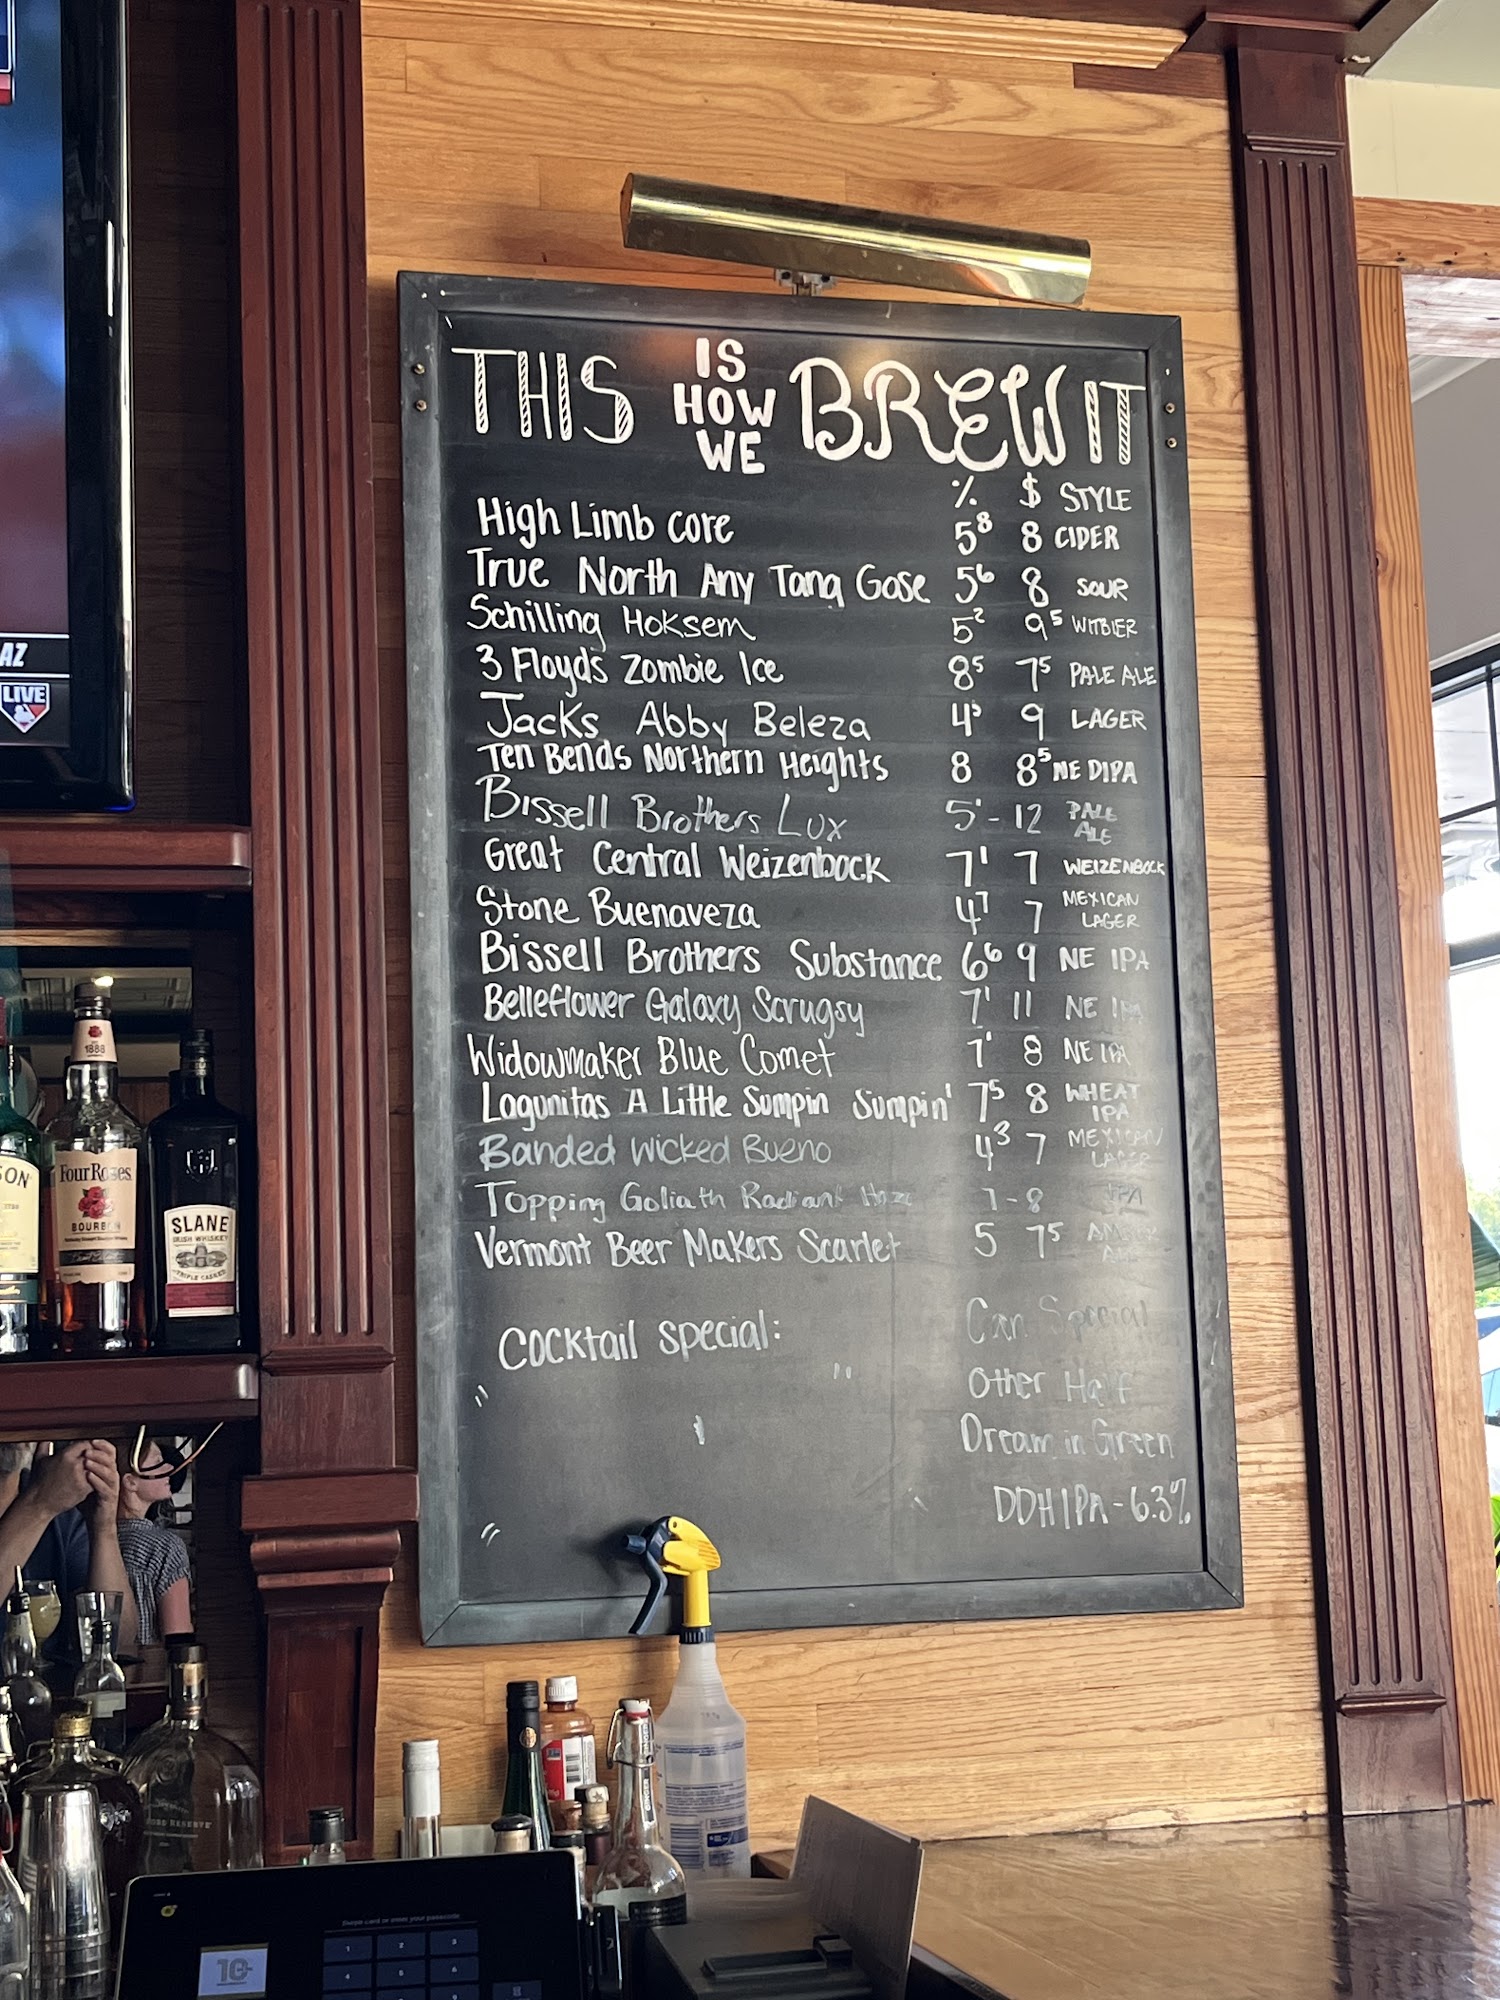 THIS IS HOW WE BREW IT
% $ STYLE
High Limb Core 5⁸ 8 CIDER
True North Any Tang Gose 5⁶ 8 SOUR
Schilling Hoksem 5² 9⁵ WITBIER
3 Floyds Zombie Ice 8⁵ 7⁵ PALE ALE
Jacks Abby Beleza 4⁵ 9 LAGER
Ten Bends Northern Heights 8 8⁵ NE DIPA
Bissell Brothers Lux 5¹ - 12 PALE ALE
Great Central Weizenbock 7¹ 7 WEIZENBOCK
Stone Buenaveza 4⁷ 7 MEXICAN LAGER
Bissell Brothers Substance 6⁶ 9 NE IPA
Belleflower Galaxy Scrugsy 7¹ 11 NE IPA
Widowmaker Blue Comet 7¹ 8 NE IPA
Lagunitas A Little Sumpin Sumpin' 7⁵ 8 WHEAT IPA
Banded Wicked Bueno 4³ 7 MEXICAN LAGER
Topping Goliath Radiant Haze 7 - 8 IPA
Vermont Beer Makers Scarlet 5 7⁵ AMBER ALE
Cocktail Special:
Can Special
Other Half
Dream in Green
DDH IPA - 6.3%
AZ
LIVE
1888
Four Roses
BOURBON
SLANE
IRISH WHISKEY
TRIPLE CASKED
SON
GINGER
Swipe card or enter your passcode
1 2 3
4 5 6
10